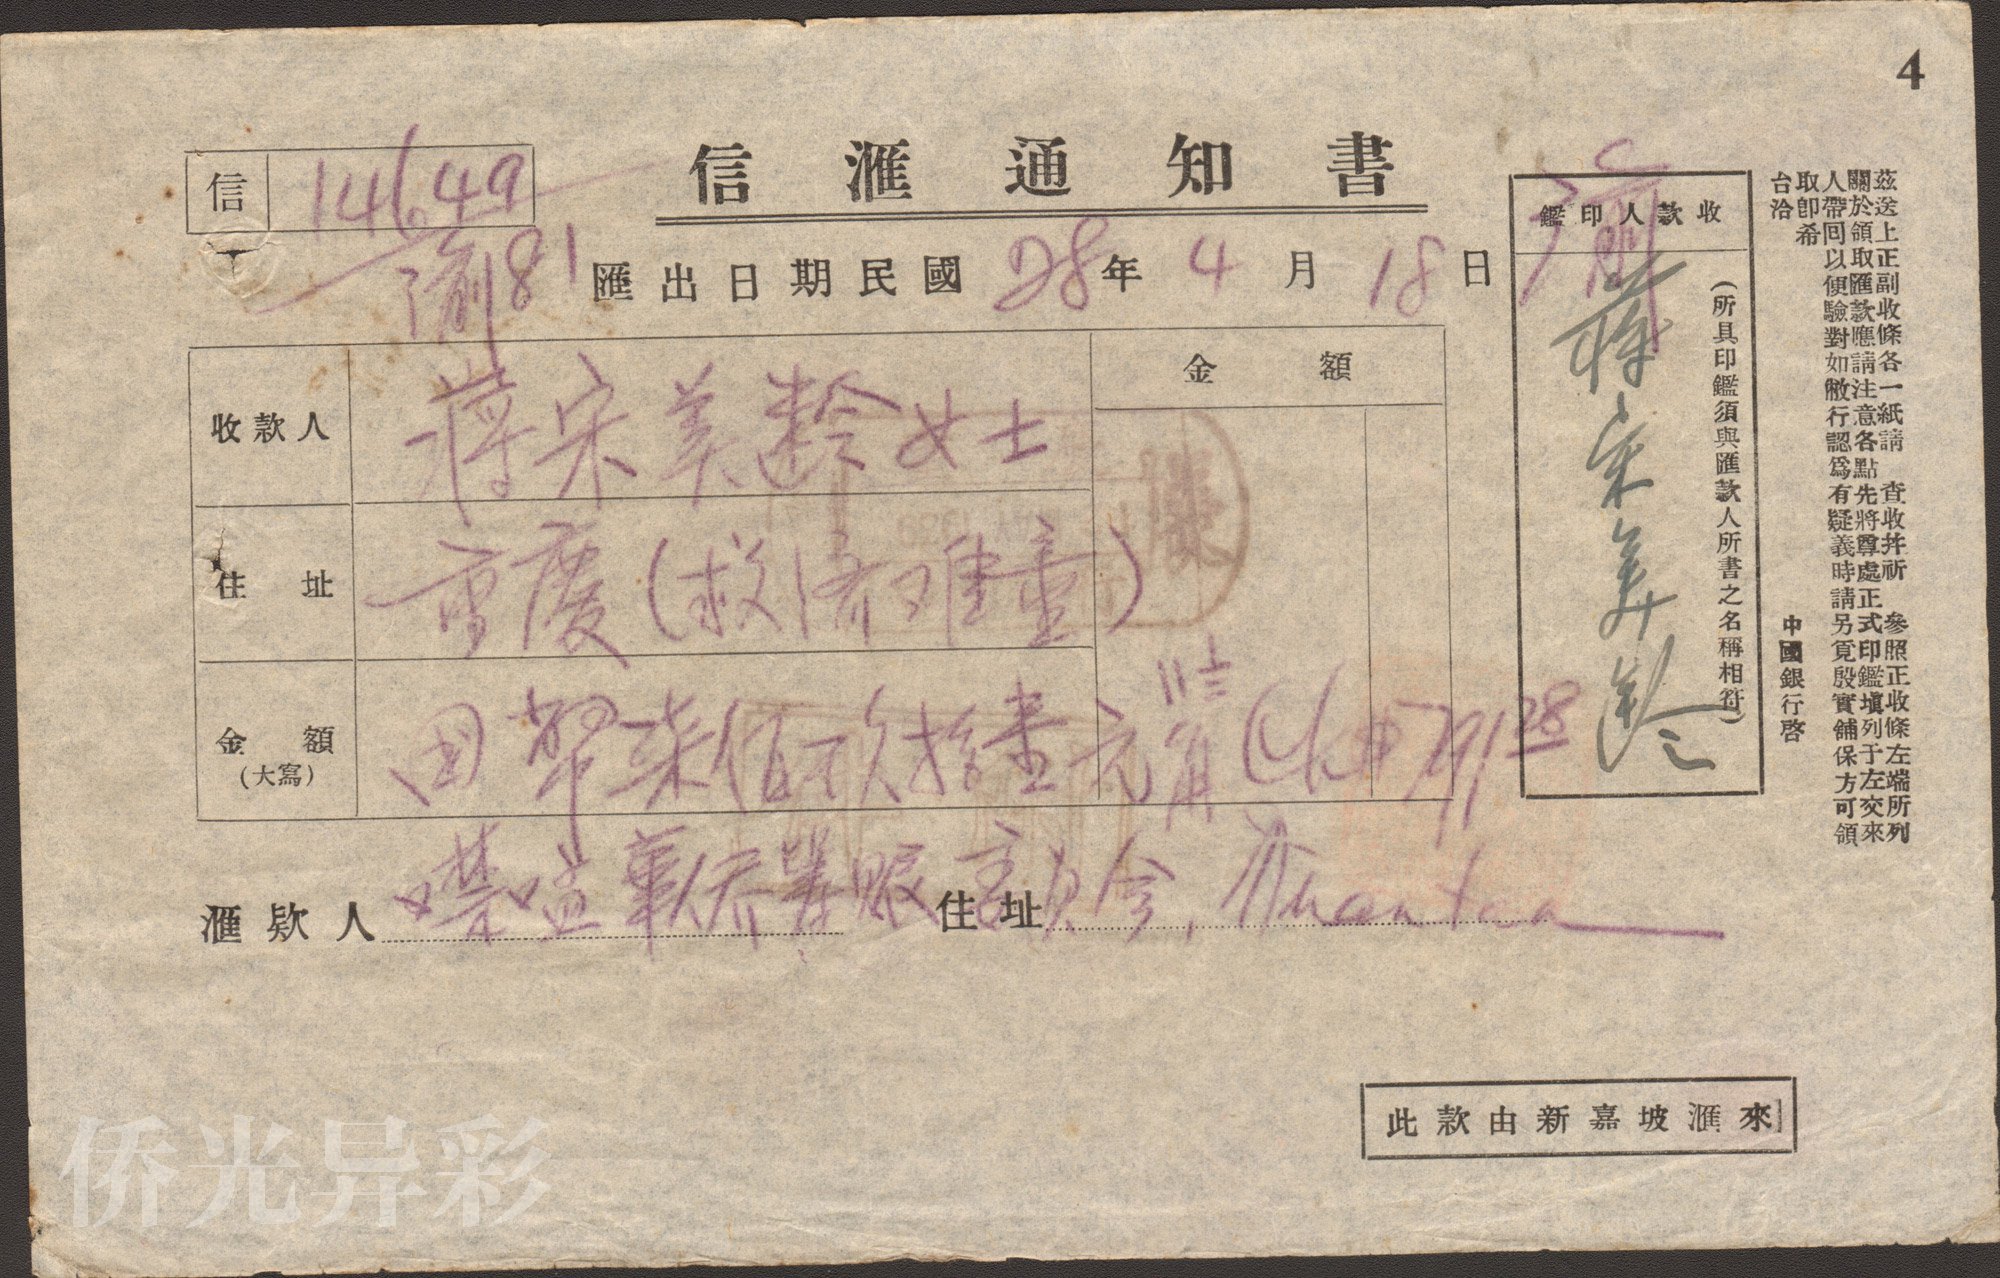 4
信滙通知書
信 14649
渝81
匯出日期民國28年4月18日
收款人 蔣宋美齡女士
住址 重慶(救济难童)
金額
金額
(大寫) 国幣柒佰玖拾壹元 角 791 28
滙欵人 华侨筹賑委員会, Kuantan
住址
收款人印鑑
(所具印鑑須與匯款人所書之名稱相符)
蔣宋美齡
茲送上正副收條各一紙請 查收幷祈 參照正收條左端所列
關於領取匯款應請注意各點先將尊處正式印鑑填列于左交來
人帶回以便驗對如敝行認爲有疑義時請另覓殷實舖保方可領
取卽希
台洽
中國銀行啓
此款由新嘉坡滙來
侨光异彩